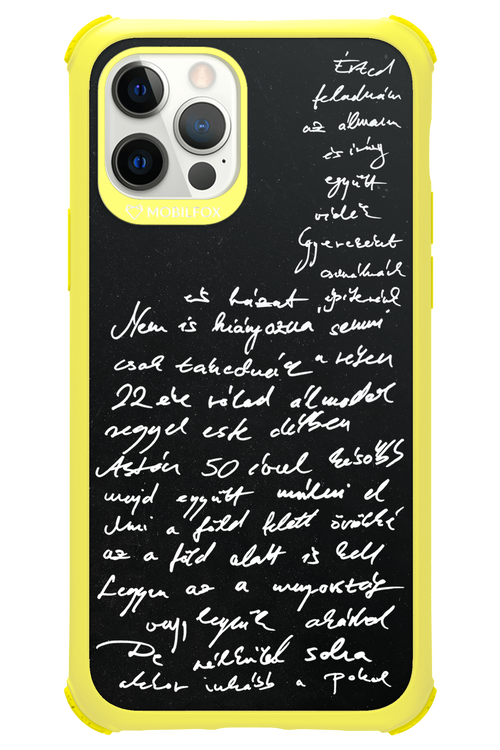 MOBILFOX
Érted
feladnám
az álmom
és így
együtt
Gyerekeket
csinálnánk
és házat építenénk
Nem is hiányozna semmi
csak a
22 éve rólad álmodok
reggel este délben
Aztán 50 évvel később
majd együtt múlni el
Ami a föld felett örökké
az a föld alatt is kell
Legyen az a mennyország
vagy legyünk akárhol
De nélküled soha
akkor inkább a pokol